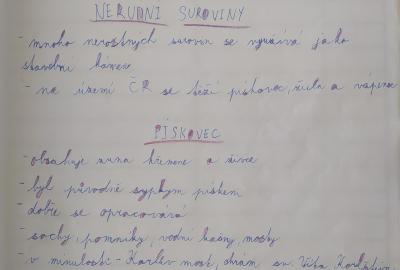 NERUDNI SUROVINY
- mnoho nerostných surovin se využívá jako
stavební kámen
- na území ČR se těží pískovec, žula a vápenec
PÍSKOVEC
- obsahuje zrna křemene a živce
- byl původně sypkým pískem
- dobře se opracovává
- sochy, pomníky, vodní kašny, mosty
- v minulosti - Karlův most, chrám sv. Víta